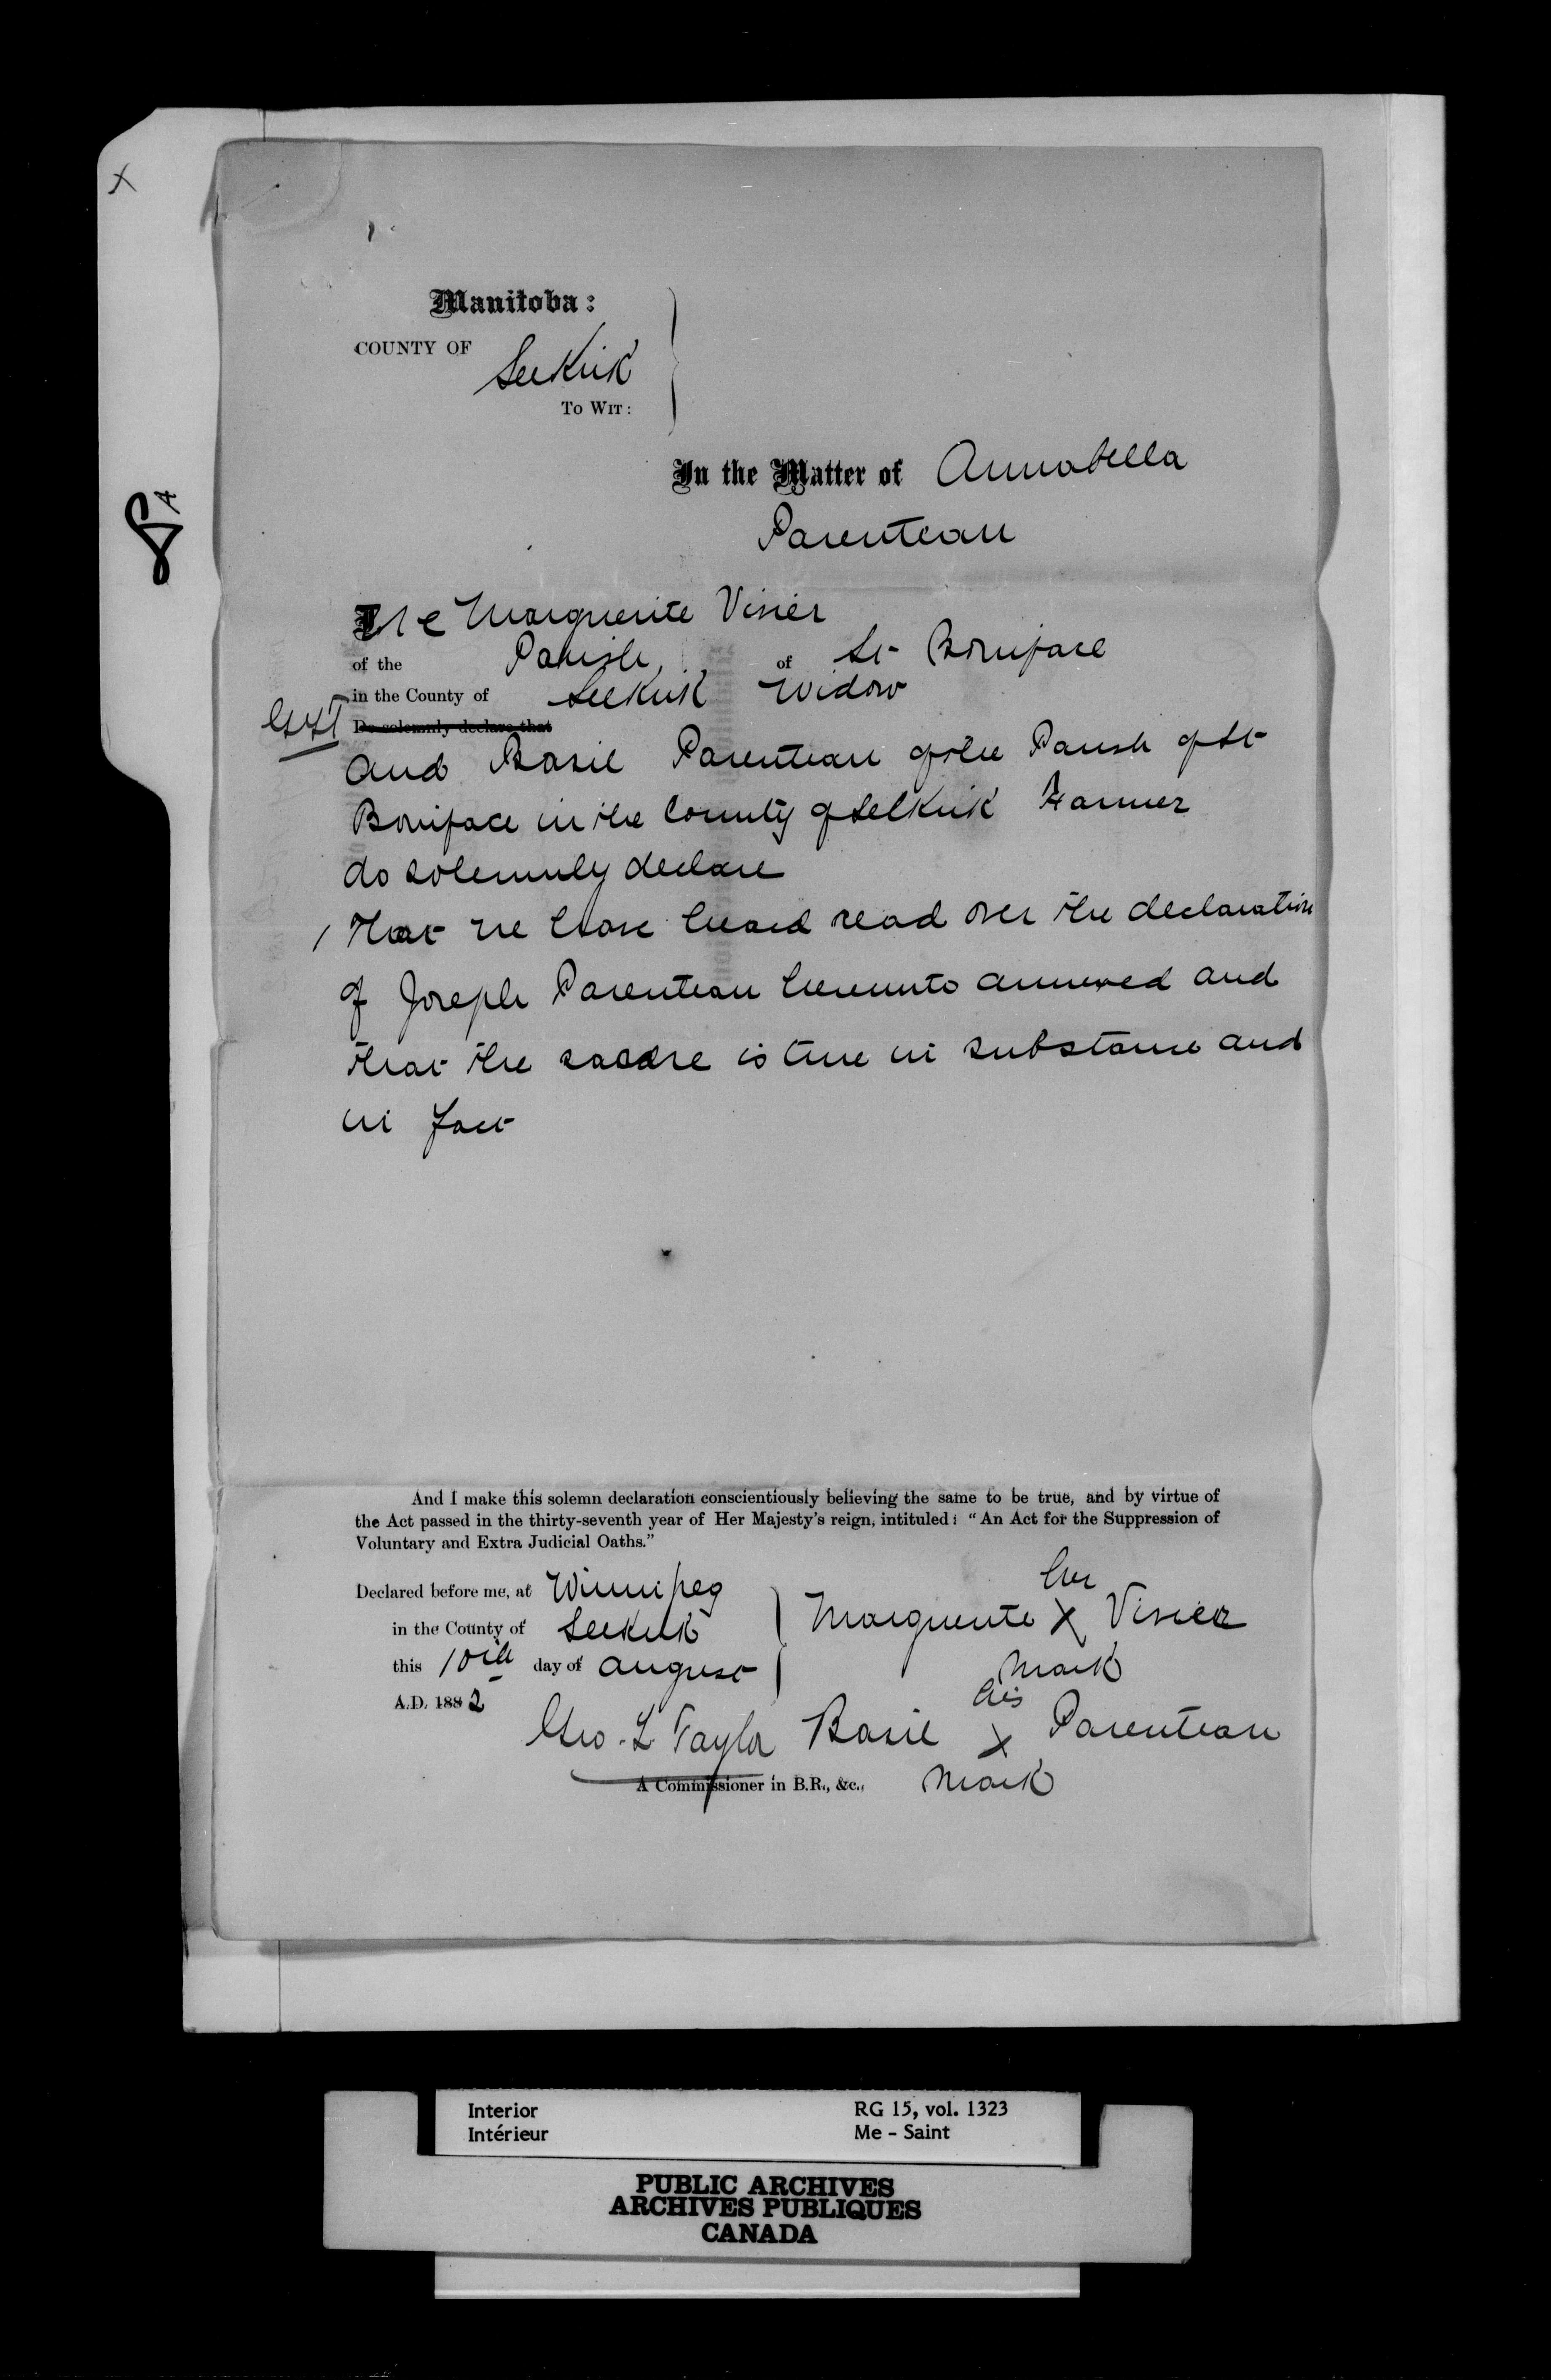 X
Manitoba:
COUNTY OF Selkirk
TO WIT:
In the Matter of Annabella
Parenteau
We Marguerite Visier
of the Parish of St Boniface
in the County of Selkirk Widow
GLT Do solemnly declare that
and Basil Parenteau of the Parish of St
Boniface in the County of Selkirk Farmer
do solemnly declare
1 That we have heard read over the declaration
of Joseph Parenteau hereunto annexed and
that the same is true in substance and
in fact
And I make this solemn declaration conscientiously believing the same to be true, and by virtue of
the Act passed in the thirty-seventh year of Her Majesty's reign, intituled: "An Act for the Suppression of
Voluntary and Extra Judicial Oaths."
Declared before me, at Winnipeg
in the County of Selkirk
this 10th day of August
A.D. 1882
her
Marguerite X Visier
mark
his
Geo. L. Taylor Basil X Parenteau
A Commissioner in B.R., &c., mark
Interior RG 15, vol. 1323
Intérieur Me - Saint
PUBLIC ARCHIVES
ARCHIVES PUBLIQUES
CANADA